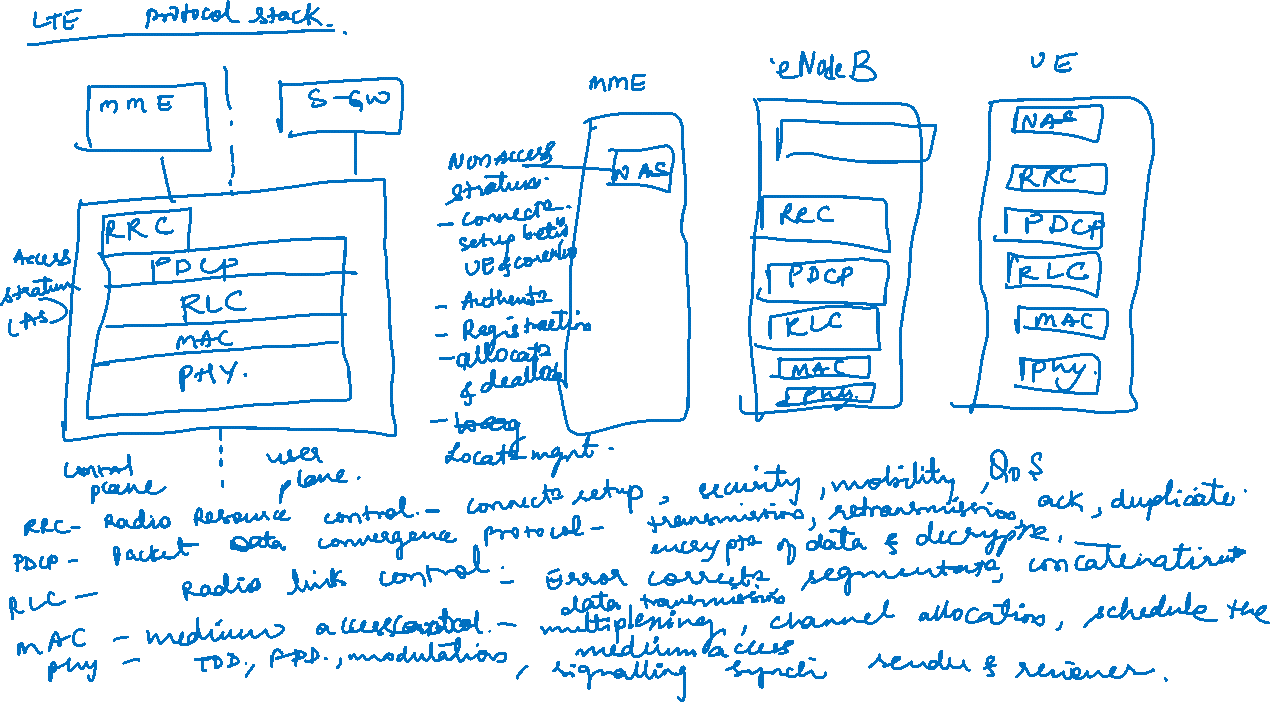 LTE protocol stack.
MME
S-GW
RRC
PDCP
RLC
MAC
PHY.
Access
stratum
(AS)
control
plane
user
plane.
Non Access
stratum.
- connectn.
setup betn
UE &
- Authentn
- Registration
- allocatn
& dealloc
-
Locatn mgnt.
MME
NAS
eNodeB
RRC
PDCP
RLC
MAC
PHY.
UE
NAS
RRC
PDCP
RLC
MAC
PHY.
RRC - Radio Resource control. - connectn setup, security, mobility, QoS
PDCP - Packet Data convergence protocol - transmission, retransmission, ack, duplicate.
encryptn of data & decryptn.
RLC - Radio link control. - Error correctn segmentatn, concatenation
data transmission
MAC - medium access control. - multiplexing, channel allocation, schedule the
medium access
Phy - TDD, FDD, modulation, signalling synch sender & reciever.